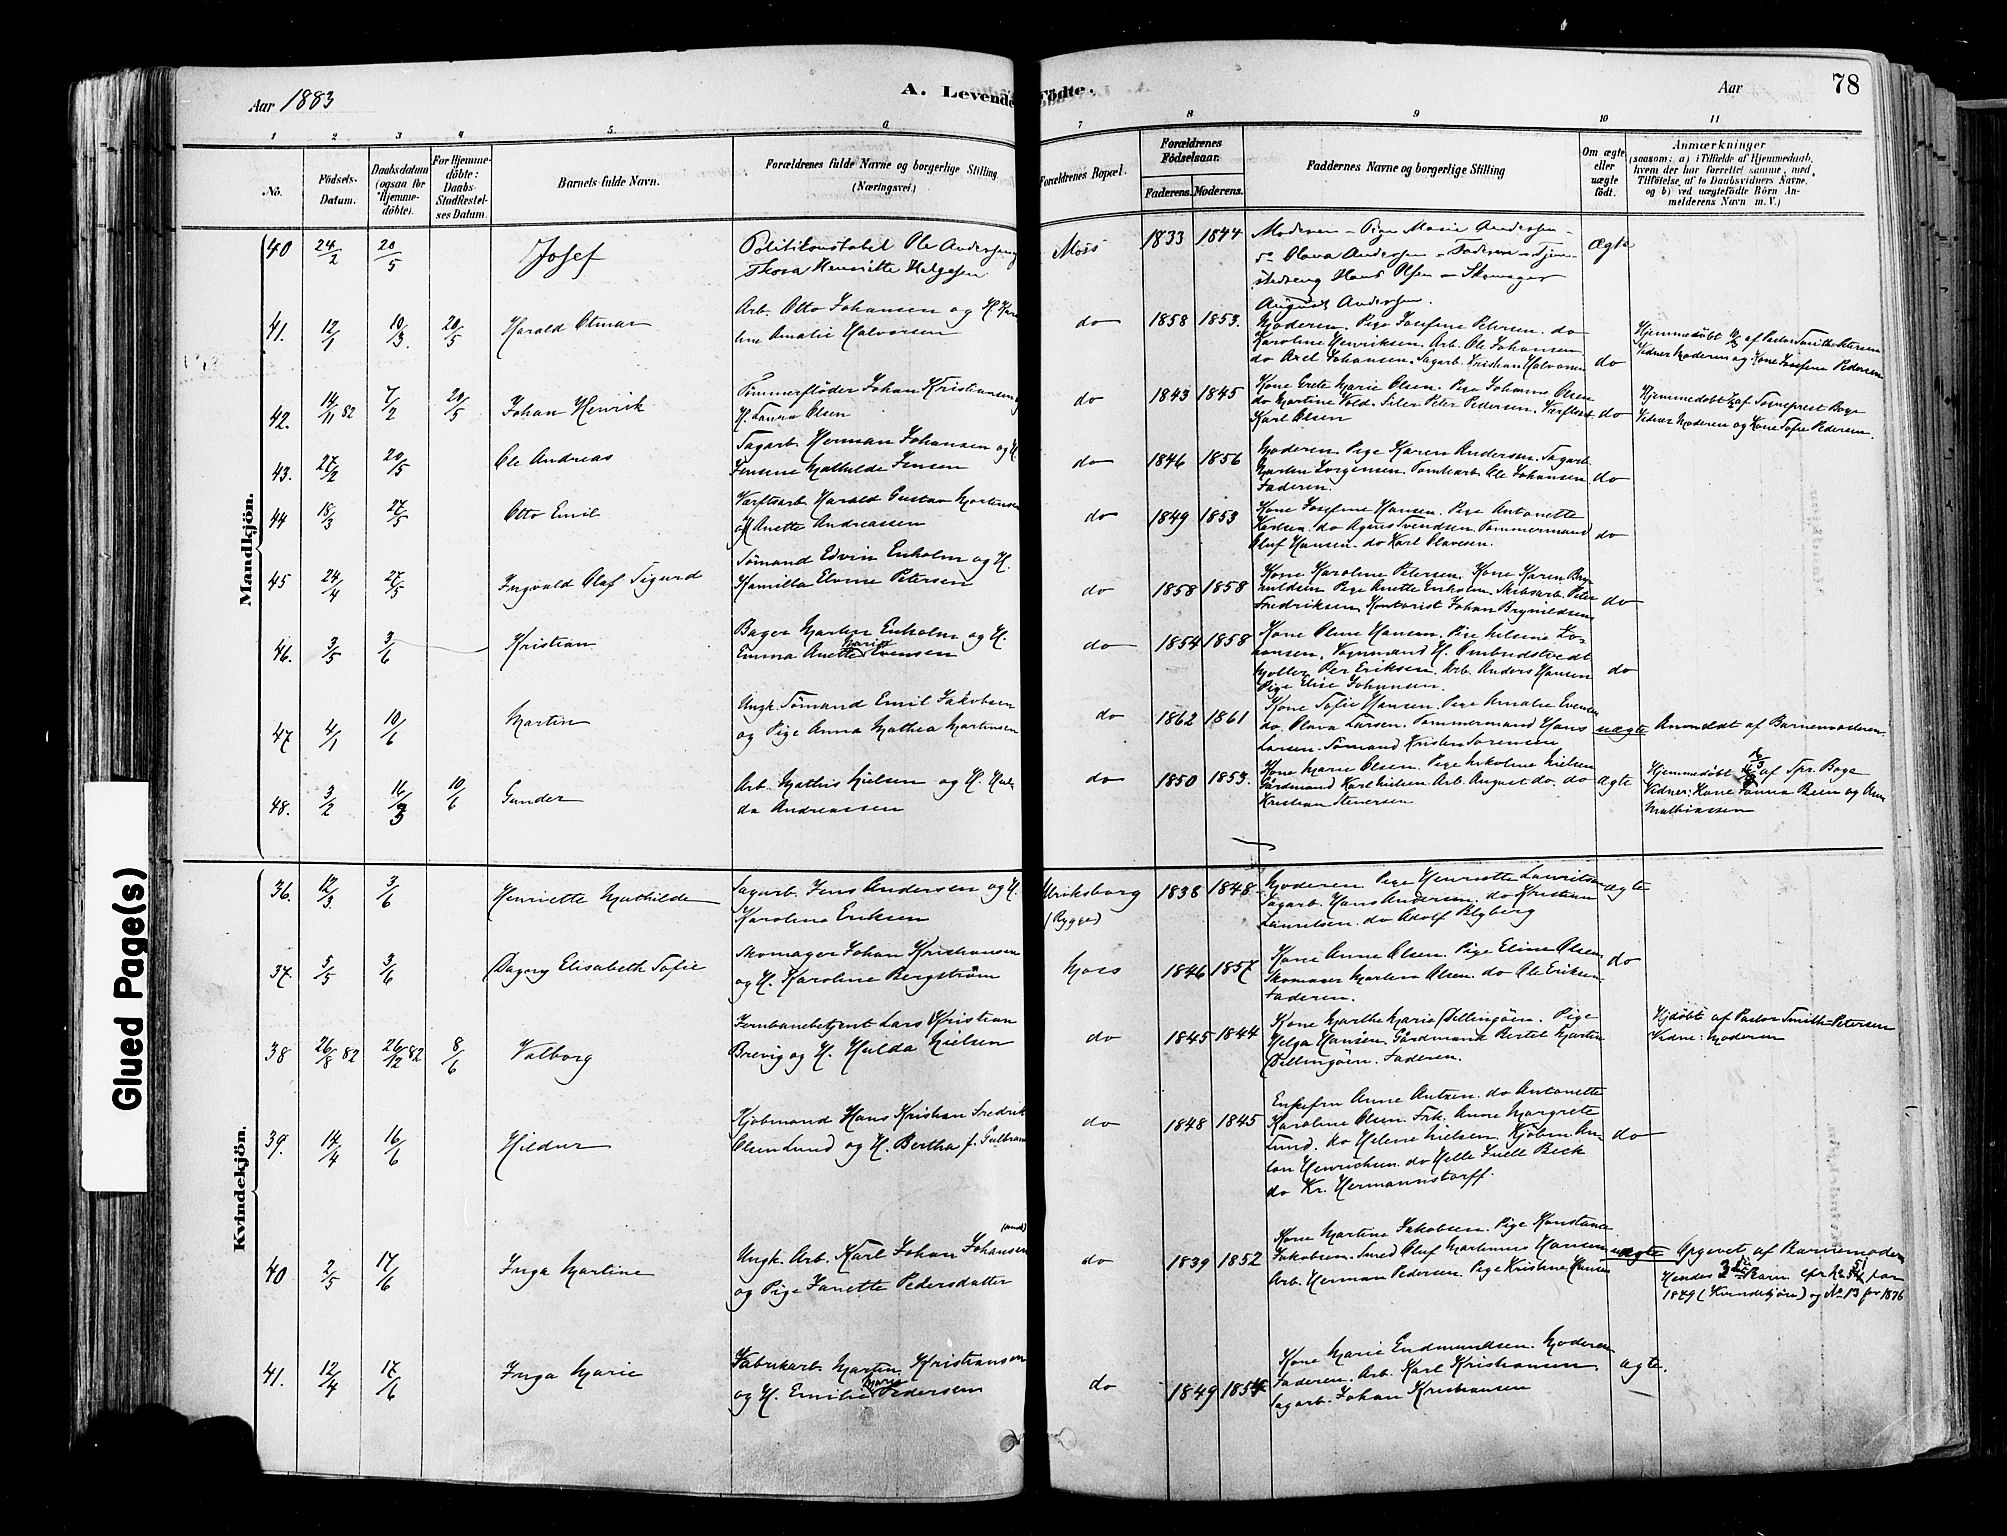 Aar 1883
A. Levende Födte.
Aar
78
1 2 3 4 5 6 7 8 9 10 11
No.
Födsels-Datum.
Daabsdatum (ogsaa for Hjemmedöbte).
For Hjemmedöbte: Daabs-Stadfestelses Datum.
Barnets fulde Navn.
Forældrenes fulde Navne og borgerlige Stilling (Næringsvei).
Forældrenes Bopæl.
Forældrenes Födselsaar.
Faderens. Moderens.
Faddernes Navne og borgerlige Stilling
Om ægte eller uægte födt.
Anmærkninger
(saasom: a) i Tilfælde af Hjemmedaab, hvem der har forrettet samme, med Tilföielse af to Daabsvidners Navne, og b) ved uægtefödte Börn Anmelderens Navn m. V.)
Mandkjön.
40 24/2 20/5 Josef
Politikonstabel Ole Andersen og
Thora Henriette Helgesen
Moss 1833 1844
Moderen – Pige Marie Andersen –
do Olava Andersen – Faderen – Tjenestedreng Hans Olsen – Skomager
August Andersen.
Ægte
41. 12/1 10/3 20/5 Harald Otmar
Arb. Otto Johansen og H. Karoline Amalie Halvorsen
do 1858 1853.
Moderen. Pige Josefine Petersen. do
Karoline Henriksen. Arb. Ole Johansen
do Axel Johansen. Sagarb. Kristian Halvorsen
do
Hjemmedøbt af Pastor Smith-Petersen
Vidner Moderen og Kone Josefine Pedersen
42. 14/11 82 7/2 20/5 Johan Henrik
Tømmerfløder Johan Kristiansen og
H. Laura Olsen
do 1843 1845
Kone Grete Marie Olsen. Pige Johanne Olsen
do Martine Vold. Peter Pedersen.
Karl Olsen
do
Hjemmedøbt af Sogneprest Boge
Vidner Moderen og Kone Sofie Pedersen.
43. 27/2 20/5 Ole Andreas
Sagarb. Herman Johansen og H.
Jensine Mathilde Jensen
do 1846 1856
Moderen Pige Karen Andersen. Sagarb
Martin Jørgensen. Tomtearb. Ole Johansen
Faderen.
do
44 18/3 27/5 Otto Emil
Værftsarb Harald Gustav Mortensen
og H Anette Andreassen
do 1849 1853
Kone Josefine Hansen. Pige Antonette
Karlsen. do Agnes Svendsen. Tømmermand
Oluf Hansen. do Karl Olavesen.
do
45 24/4 27/5 Ingvald Olaf Sigurd
Sømand Edvin Enholm og H.
Kamilla Elvine Petersen
do 1858 1858
Kone Karoline Petersen. Kone Karen Brynildsen Pige Anette Enholm. Skibsarb. Peter
Fredriksen. Kontorist Johan Brynildsen
do
46. 3/5 3/6 Kristian
Bager Martin Enholm og H.
Emma Anette Marie Evensen
do 1854 1858
Kone Oline Hansen. Pige
Møller Per Eriksen. Arb. Anders Hansen
Pige Elise Johansen.
do
47 4/1 10/6 Martin
Ungk. Sømand Emil Jakobsen
og Pige Anna Mathea Martinsen
do 1862 1861
Kone Sofie Hansen. Pige Amalie Evensen
do. Olava Larsen. Tømmermand Hans
Larsen. Sømand Kristen Sørensen
uægte
Anmeldt af Barnemoderen.
48. 3/2 16/3 10/6 Gunder
Arb. Mathis Nielsen og H. Hulda Andreassen
do 1850 1853.
Kone Marie Olsen. Pige Nielsen
Gårdmand Karl Nielsen. Arb. August do. do
Kristian Steversen.
Ægte
Hjemmedøbt af Spr. Boge
Vidner: Kone Hanna Bein og
Mathiassen
Kvindekjön.
36. 12/3 3/6 Henriette Mathilde
Sagarb. Jens Andersen og H.
Karoline Eriksen
Ulriksborg (Rygge) 1838 1848
Moderen Pige Henriette Lauritsen
Sagarb. Hans Andersen. do Kristian
Lauritsen. do Adolf Blyberg
ægte
37. 5/5 3/6 Dagny Elisabeth Sofie
Skomager Johan Kristiansen
og H. Karoline Bergstrøm
Moss 1846 1857
Kone Anne Olsen. Pige Eline Olsen
Skomager Martin Olsen. do Ole Eriksen
Faderen.
do
38 26/8 82 26/12 82 8/6 Valborg
Jernbanebetjent Lars Kristian
Brevig og H. Hulda Nielsen
do 1845 1844
Kone Marthe Marie Dillingøen. Pige
Helga Hansen. Gårdmand Bertel Martin
Dillingøen. Faderen.
Hjdøbt af Pastor Smith-Petersen
Vidne: Moderen
39. 14/4 16/6 Hildur
Kjøbmand Hans Kristian Fredrik
Olsen Lund og H. Bertha f. Gulbrans
do 1848 1845
Enkefru Anne Antzen. do Antonette
Karoline Olsen. Frk. Anne Margrete
Lund. do Helene Nielsen. Kjøbm Anton Henrichsen. do Helle Juell Beck
do Kr. Hermannstorff.
do
40 2/5 17/6 Inga Martine
Ungk. Arb. Karl Johan Johansen
og Pige Janette Pedersdatter
do 1839 1852
Kone Martine Jakobsen. Pige Konstance
Jakobsen. Smed Oluf Martinus Hansen
Arb. Herman Pedersen. Pige Kristine Hansen
uægte
Opgevet af Barnemoderen
Hendes 3die Barn cfr No 51 for
1879 (Kvindekjøn) og No 13 for 1876
41. 12/4 17/6 Inga Marie
Fabrikarb. Martin Kristiansen
og H. Emilie Marie Pedersen
do 1849 1854
Kone Marie Endmundsen. Moderen
Faderen. Arb. Karl Kristiansen
Sagarb. Johan Kristiansen
ægte.
Glued Page(s)